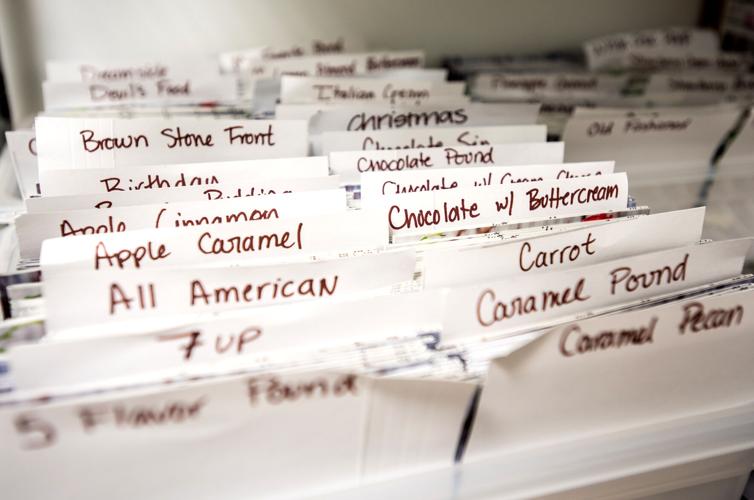 Devil's Food
Italian Cream
Christmas
Old Fashioned
Brown Stone Front
Chocolate Sin
Chocolate Pound
Birthday
Pudding
Chocolate w/ Cream Cheese
Apple Cinnamon
Chocolate w/ Buttercream
Apple Caramel
Carrot
All American
Caramel Pound
7 UP
Caramel Pecan
5 Flavor Pound